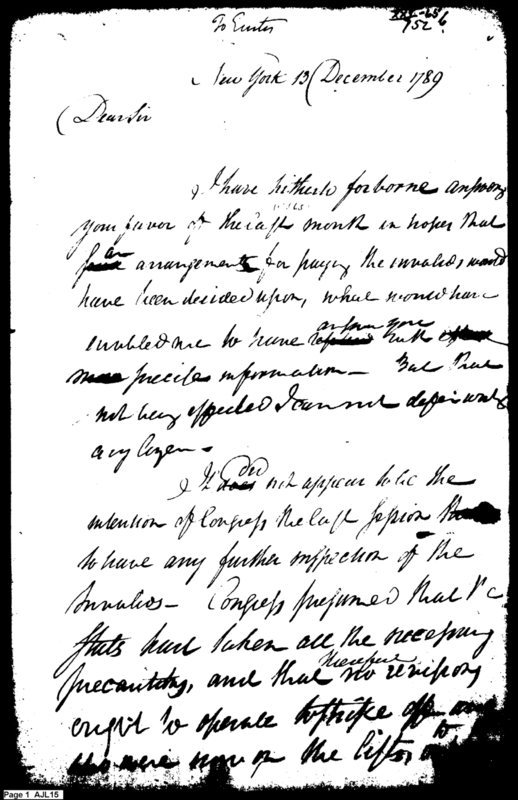 To Eustis
752
New York 13 December 1789
Dear Sir
I have hitherto forborne answering
your favor of the last month in hopes that
an
arrangements for paying the invalids would
have been decided upon, what would have
answer you
enabled me to have replied with
precise information — But that
not being effected I cannot defer writing
any longer —
did
It does not appear to be the
intention of Congress the last session
to have any further inspection of the
Invalids — Congress presumed that the
States had taken all the necessary
therefore
precautions, and that no revisions
ought to operate to strike off
who were now on the lists or to
Page 1 AJL15